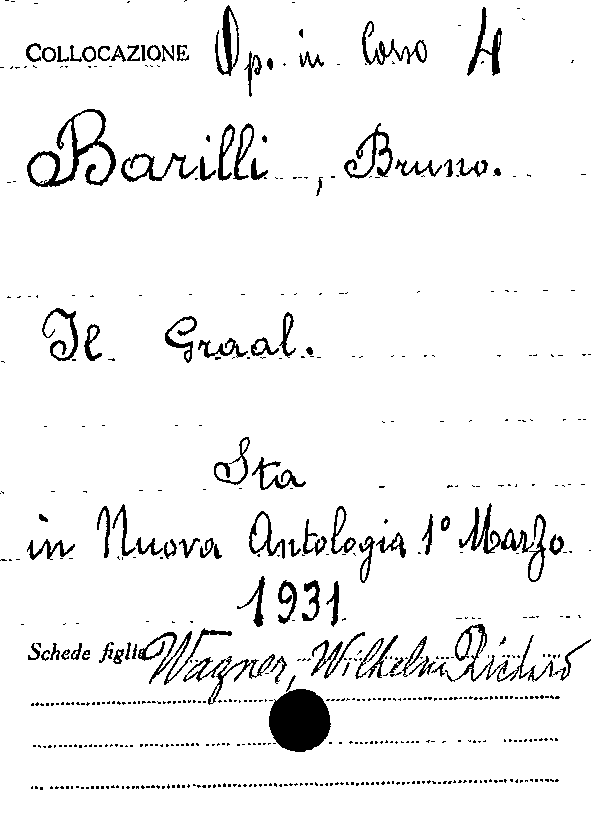 COLLOCAZIONE Op. in Corso 4
Barilli, Bruno.
Il Graal.
Sta
in Nuova Antologia 1° Marzo
1931
Schede figlie Wagner, Wilhelm Richard